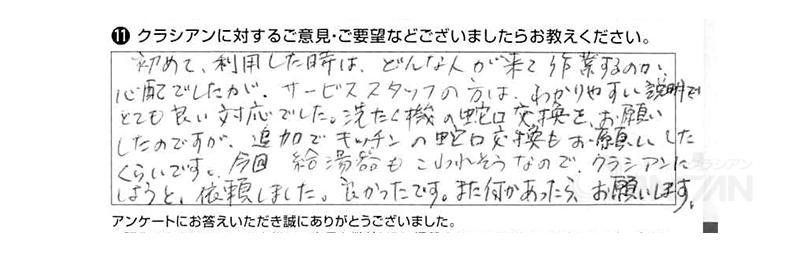 ⑪ クラシアンに対するご意見・ご要望などございましたらお教えください。
初めて、利用した時は、どんな人が来て作業するのか、
心配でしたが、サービススタッフの方は、わかりやすい説明で
とても良い対応でした。洗たく機の蛇口交換を、お願い
したのですが、追加でキッチンの蛇口交換もお願いした
くらいです。今回 給湯器もこわれそうなので、クラシアンに
しようと、依頼しました。良かったです。また何かあったら、お願いします。
アンケートにお答えいただき誠にありがとうございました。